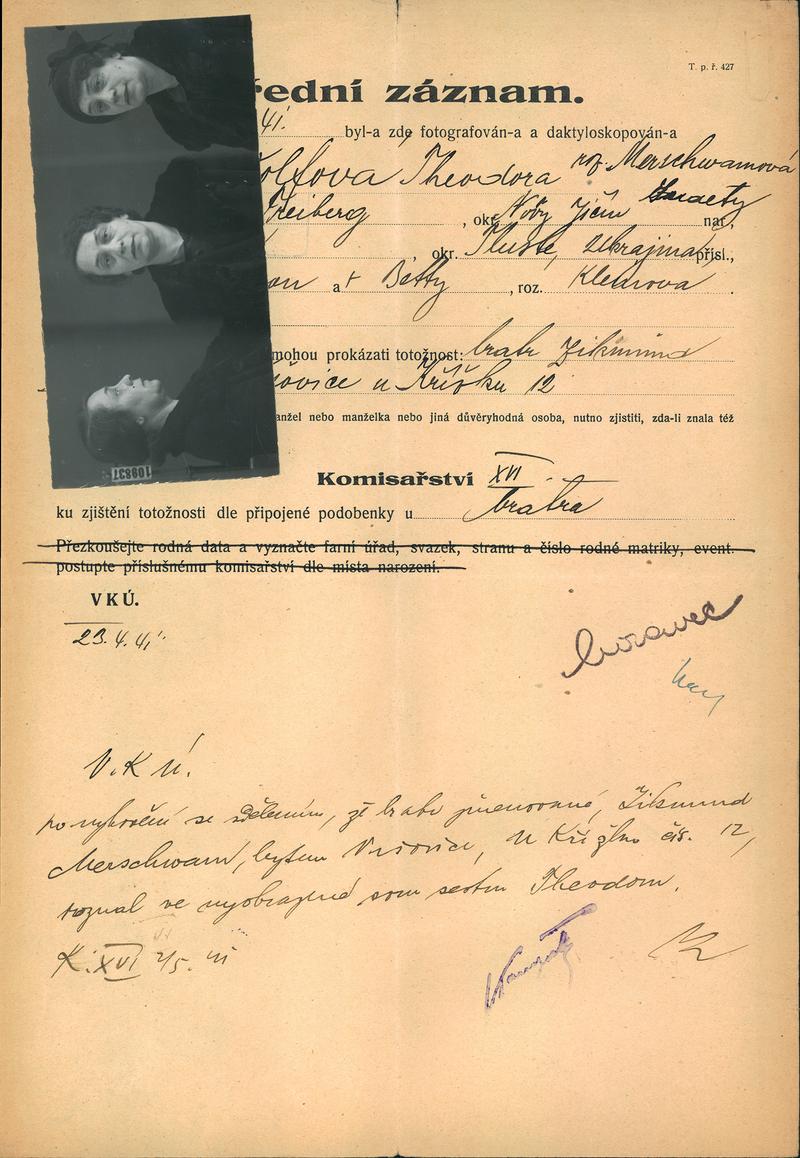 T. p. ř. 427
řední záznam.
41. byl-a zde fotografován-a a daktyloskopován-a
olfova Theodora roz. Merschwamová
Freiberg, okr. Nový Jičín nar.,
, okr. Tluste, Ukrajina, přísl.,
a + Betty, roz. Kleinova.
mohou prokázati totožnost: bratr Zikmund
šovice u Křížku 12
anžel nebo manželka nebo jiná důvěryhodná osoba, nutno zjistiti, zda-li znala též
109837
Komisařství XVI
ku zjištění totožnosti dle připojené podobenky u bratra
Přezkoušejte rodná data a vyznačte farní úřad, svazek, stranu a číslo rodné matriky, event.
postupte příslušnému komisařství dle místa narození.
VKÚ.
23. 4. 41.
V. K Ú.
se sdělením, že bratr jmenované, Zikmund
Merschwam, bytem Vršovice, u Křížku čís. 12,
poznal ve vyobrazené svou sestru Theodoru.
K. XVI 2/5. 41